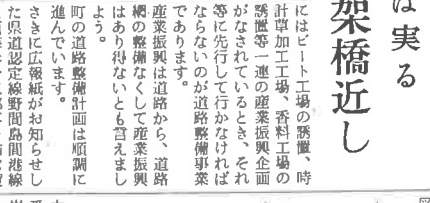 は実る
架橋近し
にはビート工場の誘置、時
計草加工工場、香料工場の
誘置等一連の産業振興企画
がなされているとき、それ
等に先行して行かなければ
ならないのが道路整備事業
であります。
産業振興は道路から、道路
網の整備なくして産業振興
はあり得ないとも言えまし
よう。
町の道路整備計画は順調に
進んでいます。
さきに広報紙がお知らせし
た県道認定線野間島間港線